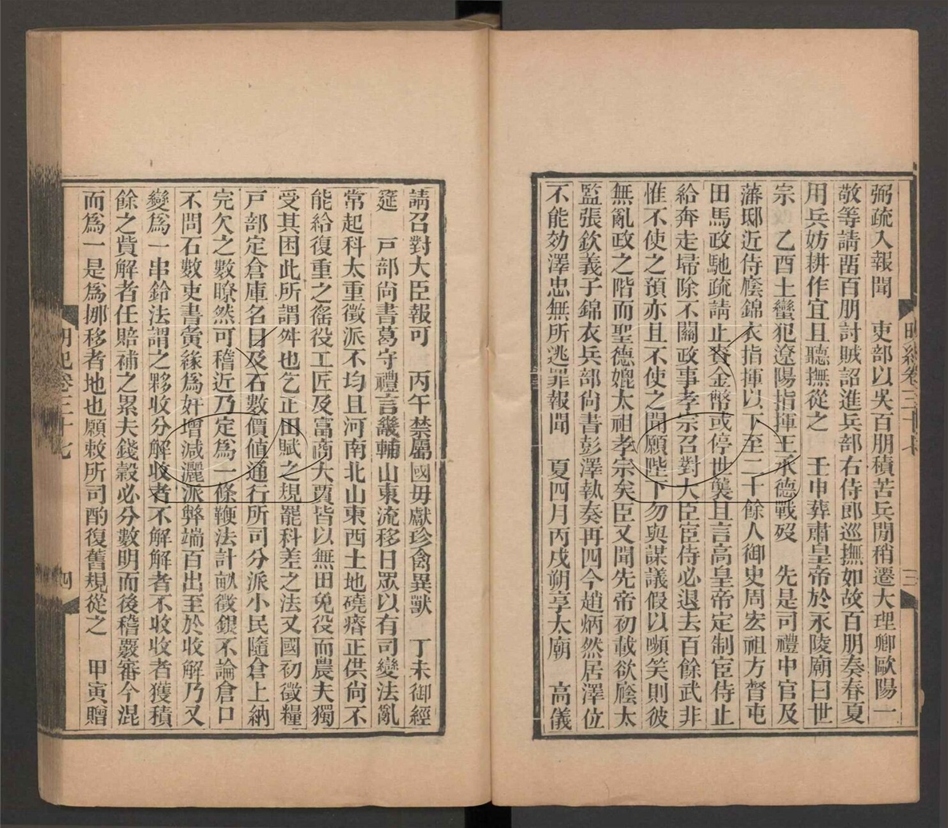 弼疏入報聞　吏部以吳百朋積苦兵閒稍遷大理卿歐陽一
敬等請畱百朋討賊詔進兵部右侍郎巡撫如故百朋奏春夏
用兵妨耕作宜且聽撫從之　壬申葬肅皇帝於永陵廟曰世
宗　乙酉土蠻犯遼陽指揮王承德戰歿　先是司禮中官及
藩邸近侍廕錦衣指揮以下至二十餘人御史周宏祖方督屯
田馬政馳疏請止賚金幣或停世襲且言高皇帝定制宦侍止
給奔走埽除不關政事孝宗召對大臣宦侍必退去百餘武非
惟不使之預亦且不使之聞願陛下勿與謀議假以嚬笑則彼
無亂政之階而聖德媲太祖孝宗矣臣又聞先帝初載欲廕太
監張欽義子錦衣兵部尙書彭澤執奏再四今趙炳然居澤位
不能効澤忠無所逃罪報聞　夏四月丙戌朔享太廟　高儀
三
請召對大臣報可　丙午禁屬國毋獻珍禽異獸　丁未御經
筵　戸部尙書葛守禮言畿輔山東流移日眾以有司變法亂
常起科太重徵派不均且河南北山東西土地磽瘠正供尙不
能給復重之徭役工匠及富商大賈皆以無田免役而農夫獨
受其困此所謂舛也乞正田賦之規罷科差之法又國初徵糧
戸部定倉庫名目及石數價値通行所司分派小民隨倉上納
完欠之數瞭然可稽近乃定爲一條鞭法計畝徵銀不論倉口
不問石數吏書夤緣爲奸增減灑派弊端百出至於收解乃又
變爲一串鈴法謂之夥收分解收者不解解者不收收者獲積
餘之貲解者任賠補之累夫錢穀必分數明而後稽覈審今混
而爲一是爲挪移者地也願敕所司酌復舊規從之　甲寅贈
明紀卷三十七
四